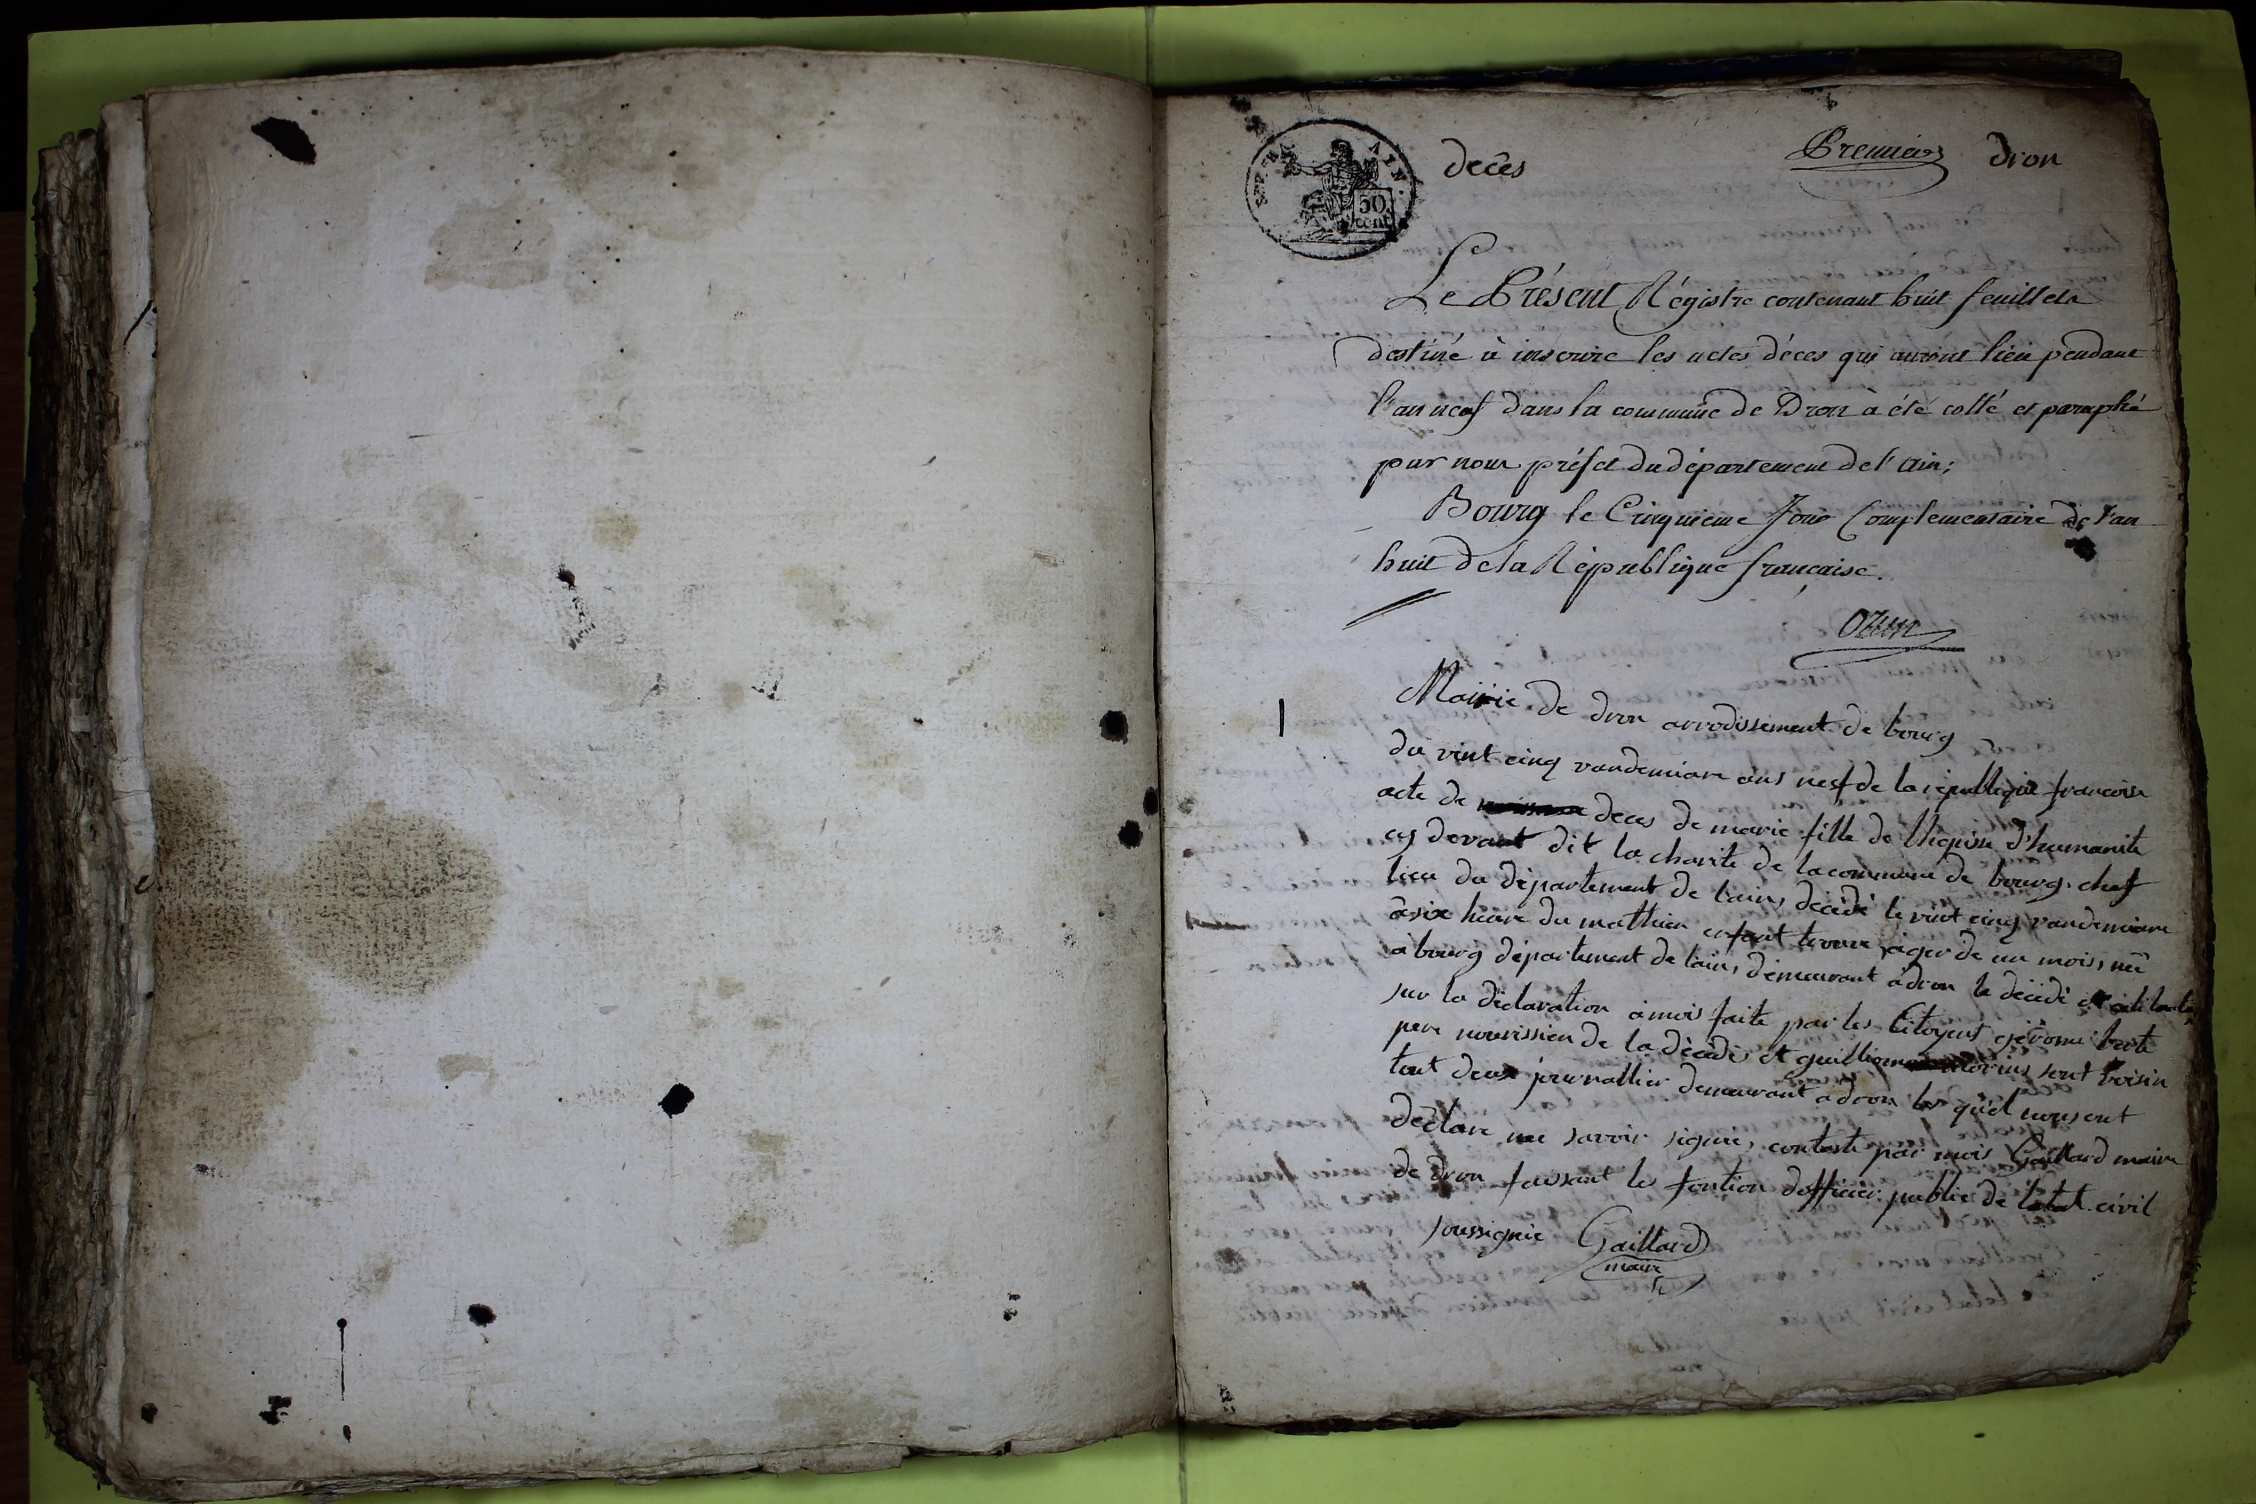 decês Premier dron
50 cent
Le Présent Régistre contenant huit feuillets
destiné à inscrire les actes déces qui auront lieu pendant
l'an neuf dans la commune de Dron à été cotté et paraphé
par nous préfet du département de l'ain;
Bourg le Cinquieme Jour Complementaire de l'an
huit de la République française.
Ozun
1
Mairie de dron arrodissement de bourg
du vint cinq vandemiare ans neuf de la republique francoise
acte de deces de marie fille de lhopise d'humanite
cy devant dit la charite de la commune de bourg chef
lieu du département de l'ain, décédé le vint cinq vandemiare
à six heure du mathien enfant trouve, ager de un mois, né
a bourg département de lain, demeurant à dron la décédé
sur la déclaration à mois faite par les Citoyens gérome
pere nourissien de la décédé et guilliome morin sont voisin
tout deux journallier demeurant a dron les quel nous ont
déclare ne savoir signie, conteste par mois Gaillard maire
de dron faissant les fontion dofficier public de letat civil
soussignie Gaillard
maire